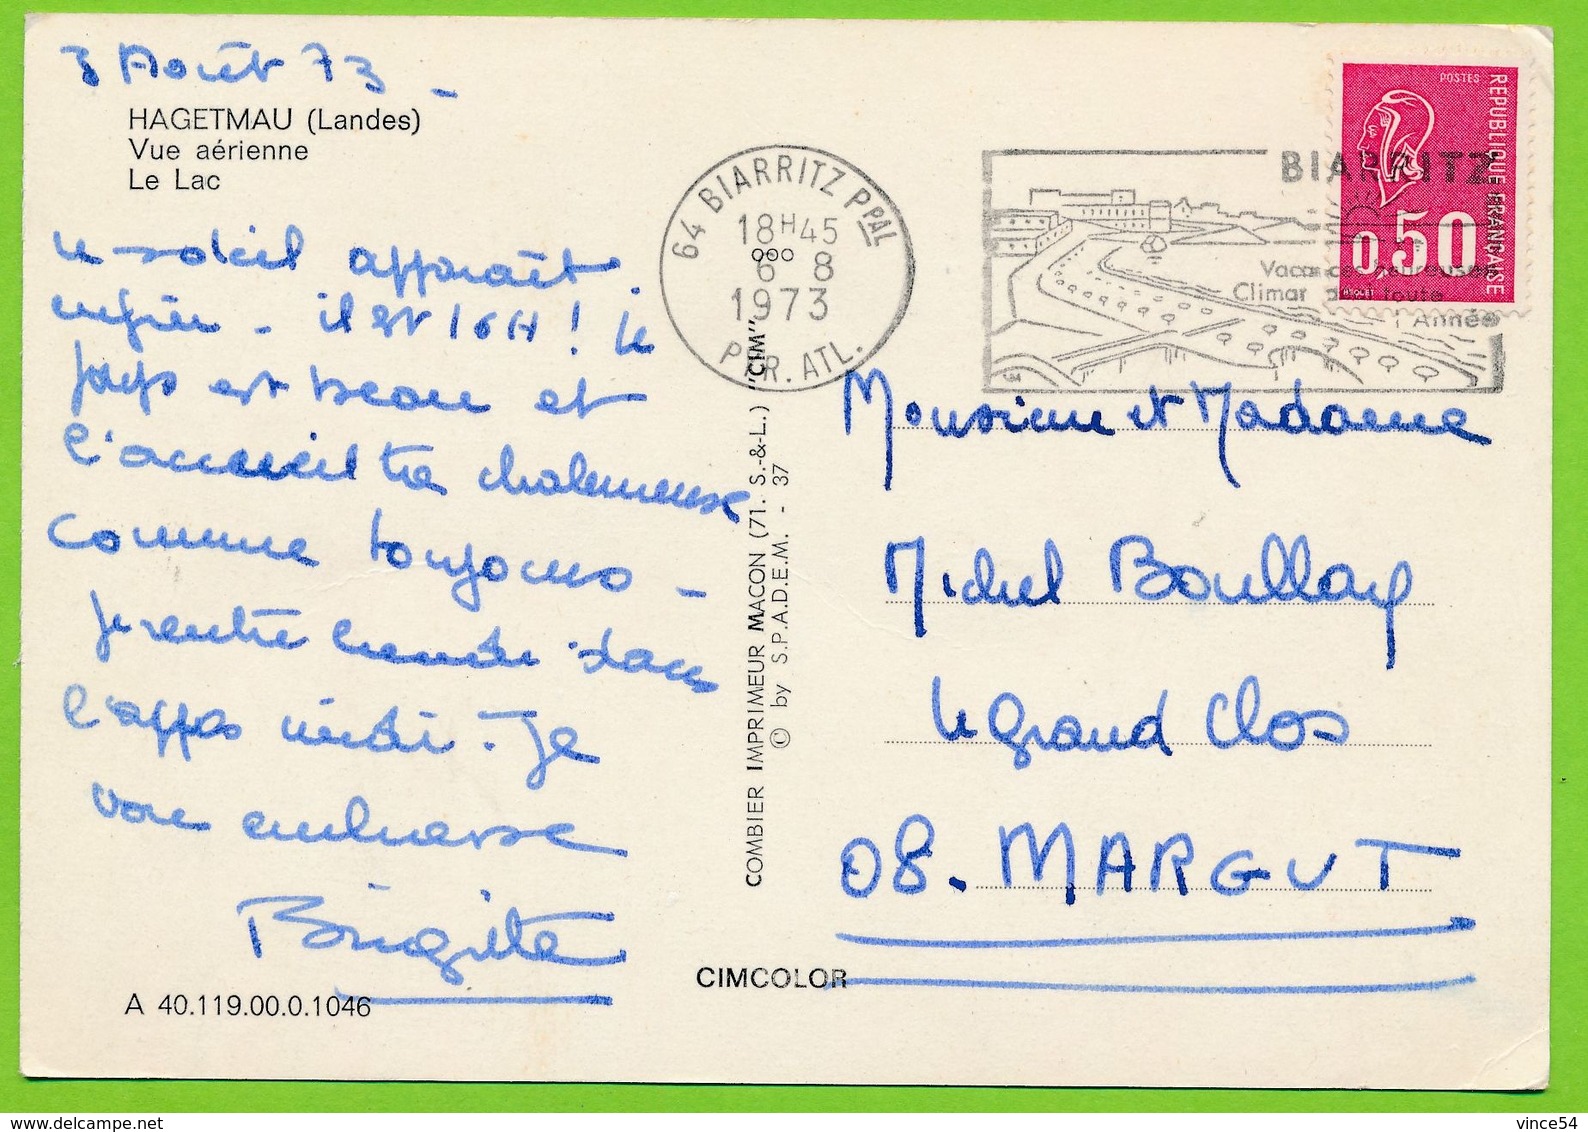 3 Août 73 -
HAGETMAU (Landes)
Vue aérienne
Le Lac
le soleil apparaît
enfin - il est 16H ! le
pays est beau et
l'accueil très chaleureuse
comme toujours -
je rentre lundi dans
l'après midi. Je
vous embrasse
Brigitte
A 40.119.00.0.1046
64 BIARRITZ PPAL
18H45
6 8
1973
PYR. ATL.
COMBIER IMPRIMEUR MACON (71. S.-&-L.) "CIM"
© by S.P.A.D.E.M. - 37
CIMCOLOR
BIARRITZ
Vacances heureuses
Climat de toute
l'Année
POSTES
REPUBLIQUE FRANÇAISE
0,50
Monsieur et Madame
Michel Boullay
le grand Clos
08. MARGUT
vince54